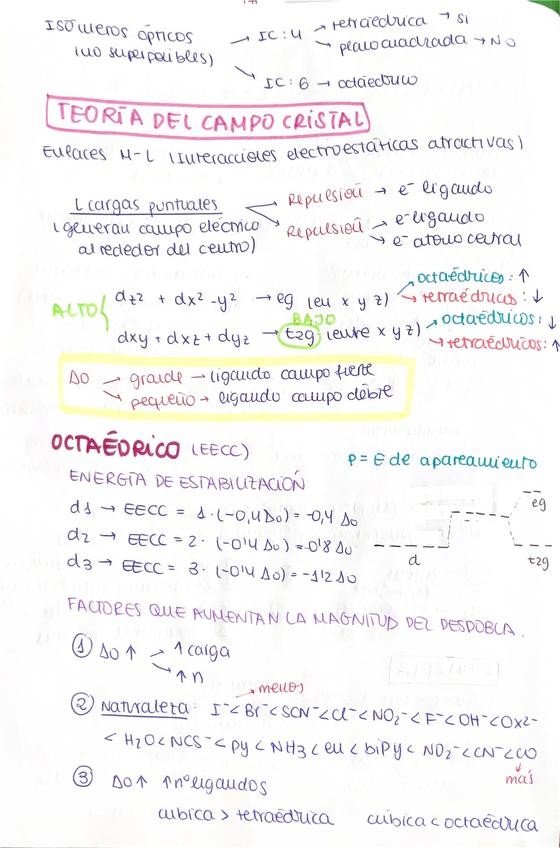 ISÓMEROS ÓPTICOS
(no superponibles)
→ IC: 4 → tetraédrica → SI
→ planocuadrada → NO
→ IC: 6 → octaédrico
TEORÍA DEL CAMPO CRISTAL
Enlaces M-L (Interacciones electroestáticas atractivas)
L cargas puntuales
(generan campo eléctrico
alrededor del centro)
Repulsión → e⁻ ligando
Repulsión → e⁻ ligando
→ e⁻ átomo central
ALTO
dz² + dx²-y² → eg (en x y z) → octaédricos: ↑
→ tetraédricas: ↓
BAJO
dxy + dxz + dyz → t2g (entre x y z) → octaédricos: ↓
→ tetraédricos: ↑
Δo → grande → ligando campo fuerte
→ pequeño → ligando campo débil
OCTAÉDRICO (EECC)
P = E de apareamiento
ENERGÍA DE ESTABILIZACIÓN
d1 → EECC = 1·(-0,4 Δo) = -0,4 Δo
d2 → EECC = 2·(-0'4 Δo) = -0'8 Δo
d3 → EECC = 3·(-0'4 Δo) = -1'2 Δo
eg
d
t2g
FACTORES QUE AUMENTAN LA MAGNITUD DEL DESDOBLA.
① Δo ↑ → ↑ carga
→ ↑ n
→ menos
② Naturaleza: I⁻<Br⁻<SCN⁻<Cl⁻<NO₂⁻<F⁻<OH⁻<Ox²⁻
< H₂O < NCS⁻ < py < NH3 < en < biPy < NO₂⁻<CN⁻<CO
más
③ Δo ↑ ↑ nº ligandos
cúbica > tetraédrica cúbica < octaédrica